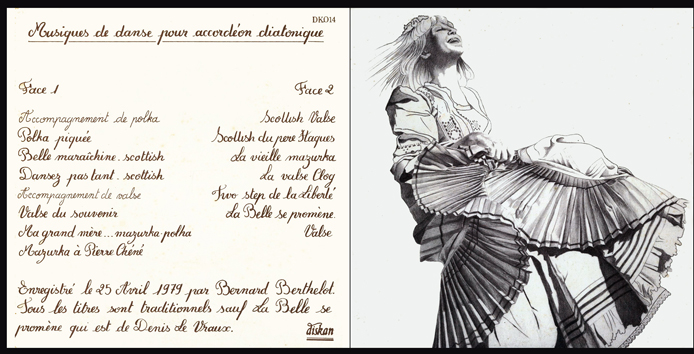 DKO14
Musiques de danse pour accordéon diatonique
Face 1
Accompagnement de polka
Polka piquée
Belle maraîchine . scottish
Dansez pas tant . scottish
Accompagnement de valse
Valse du souvenir
Ma grand mère... mazurka polka
Mazurka à Pierre Chéné
Face 2
Scottish Valse
Scottish du père Haques
La vieille mazurka
La valse Clog
Two step de la Liberté
La Belle se promène.
Valse
Enregistré le 25 Avril 1979 par Bernard Berthelot.
Tous les titres sont traditionnels sauf La Belle se
promène qui est de Denis Le Vraux.
diskan